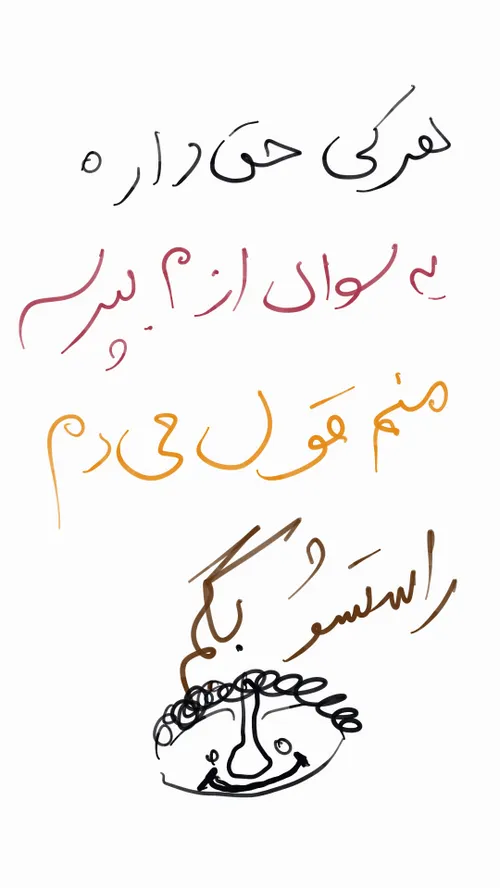 هرکی حق داره
یه سوال ازم بپرسه
منم قول می دم
راستشو بگم